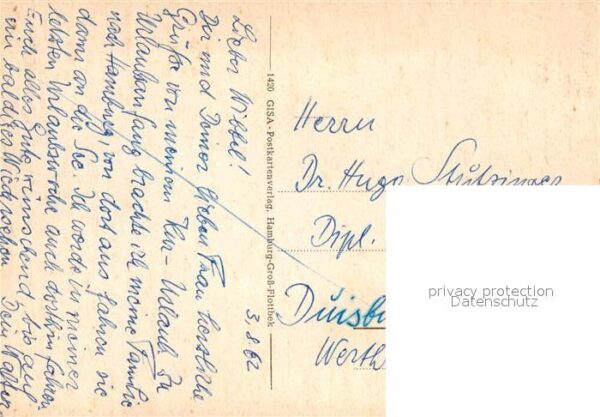 3.8.62
Lieber Wibbel!
Dir und Deiner lieben Frau herzliche
Grüße von meinem Kur-Urlaub. Zu
Urlaubsanfang brachte ich meine Familie
nach Hamburg, von dort aus fahren sie
dann an die See. Ich werde in meiner
letzten Urlaubswoche auch dorthin fahren.
Euch alles Gute wünschend, bis auf
ein baldiges Wiedersehen Dein Walter
1420 GISA-Postkartenverlag, Hamburg-Groß-Flottbek
Herrn
Dr. Hugo
Dipl.
Duisb
Werth
privacy protection
Datenschutz